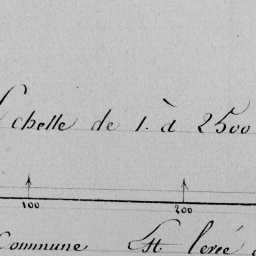 Echelle de 1. à 2500
100 200
Commune Est levée